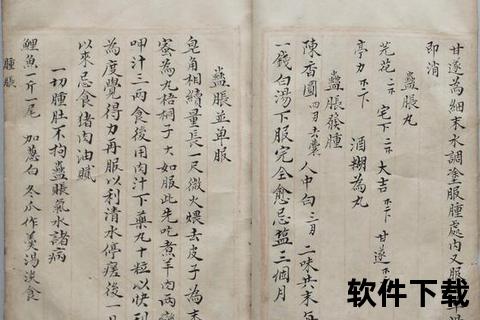 甘遂為細末水調塗服腫處內又服
即消
蠱脹丸
芫花 宅下 大吉 甘遂
亭力 酒糊為丸
蠱脹發腫
陳香圓 四刃去囊 人中白 二味共末每
一錢白湯下服完全愈忌鹽三個月
蠱脹並單服
皂角相續量長一尺微火煨去皮子為末
蜜為丸梧桐子大如服此先吃煮羊肉兩
呷汁三兩食後用肉汁下藥九十粒以快到
為度覺得力再服以利清水停瘥後一
以來忌食豬肉油膩
一切腫肚不拘蠱脹氣水諸病
鯉魚一斤一尾 加蔥白冬瓜作羹湯淡食
腫脹
软件下载